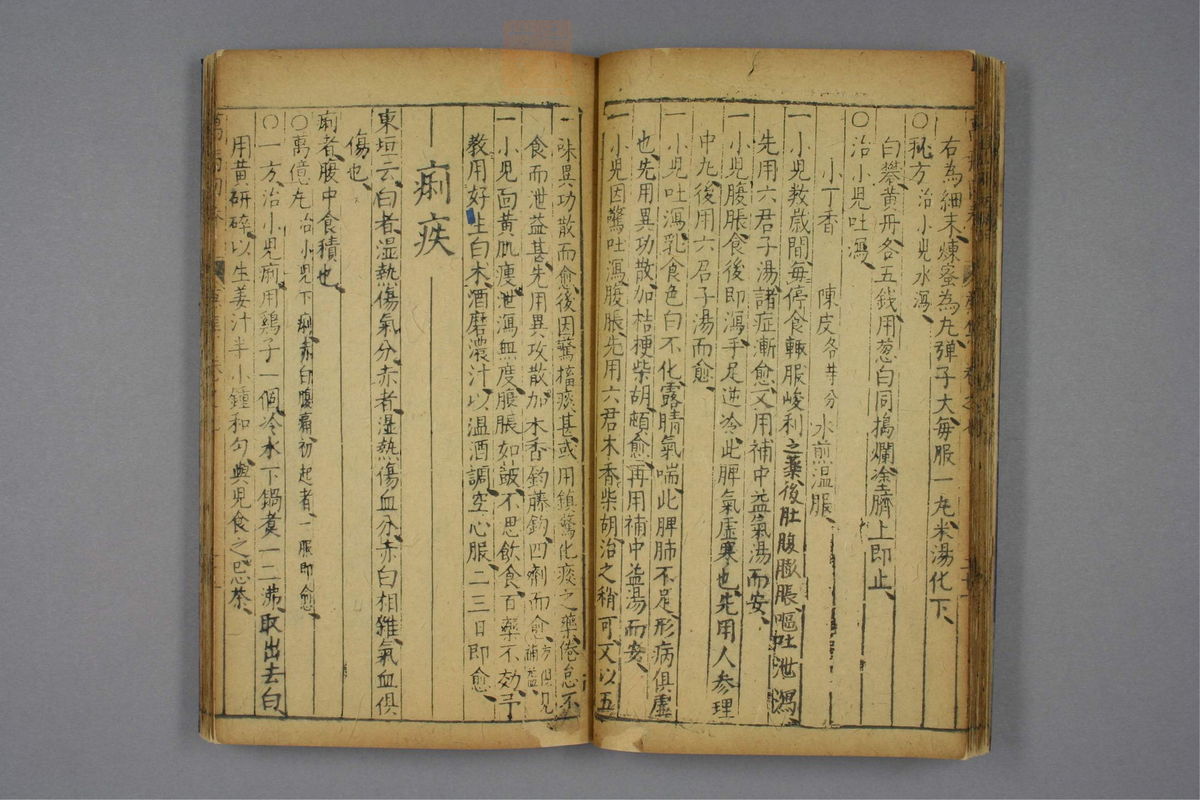 右為細末煉蜜為丸彈子大每服一丸米湯化下
○秘方治小兒水瀉
白礬黃丹各五錢用葱白同搗爛塗臍上即止
○治小兒吐瀉
小丁香 陳皮各等分 水煎温服
一小兒数歳間每停食輙服峻利之藥後肚腹膨脹嘔吐泄瀉
先用六君子湯諸症漸愈又用補中益氣湯而安
一小兒腹脹食後即瀉手足逆冷此脾氣虛寒也先用人参理
中丸後用六君子湯而愈
一小兒吐瀉乳食色白不化露睛氣喘此脾肺不足形病俱虛
也先用異功散加桔梗柴胡頗愈再用補中益湯而安
一小兒因驚吐瀉腹脹先用六君木香柴胡治之稍可又以五
味異功散而愈後因驚搐痰甚或用鎮驚化痰之藥倦怠不
食而泄益甚先用異攻散加木香釣藤鈎四劑而愈 方俱見補益
一小兒面黃肌瘦泄瀉無度腹脹如皷不思飲食百藥不効予
教用好生白木酒磨濃汁以温酒調空心服二三日即愈
痢疾
東垣云白者湿熱傷氣分赤者湿熱傷血分赤白相雜氣血俱
傷也
痢者腹中食積也
○萬億丸 治小兒下痢赤白腹痛初起者一服即愈
○一方治小兒痢用鷄子一個冷水下鍋煮一二沸取出去白
用黄研碎以生姜汁半小鍾和匀與兒食之忌茶